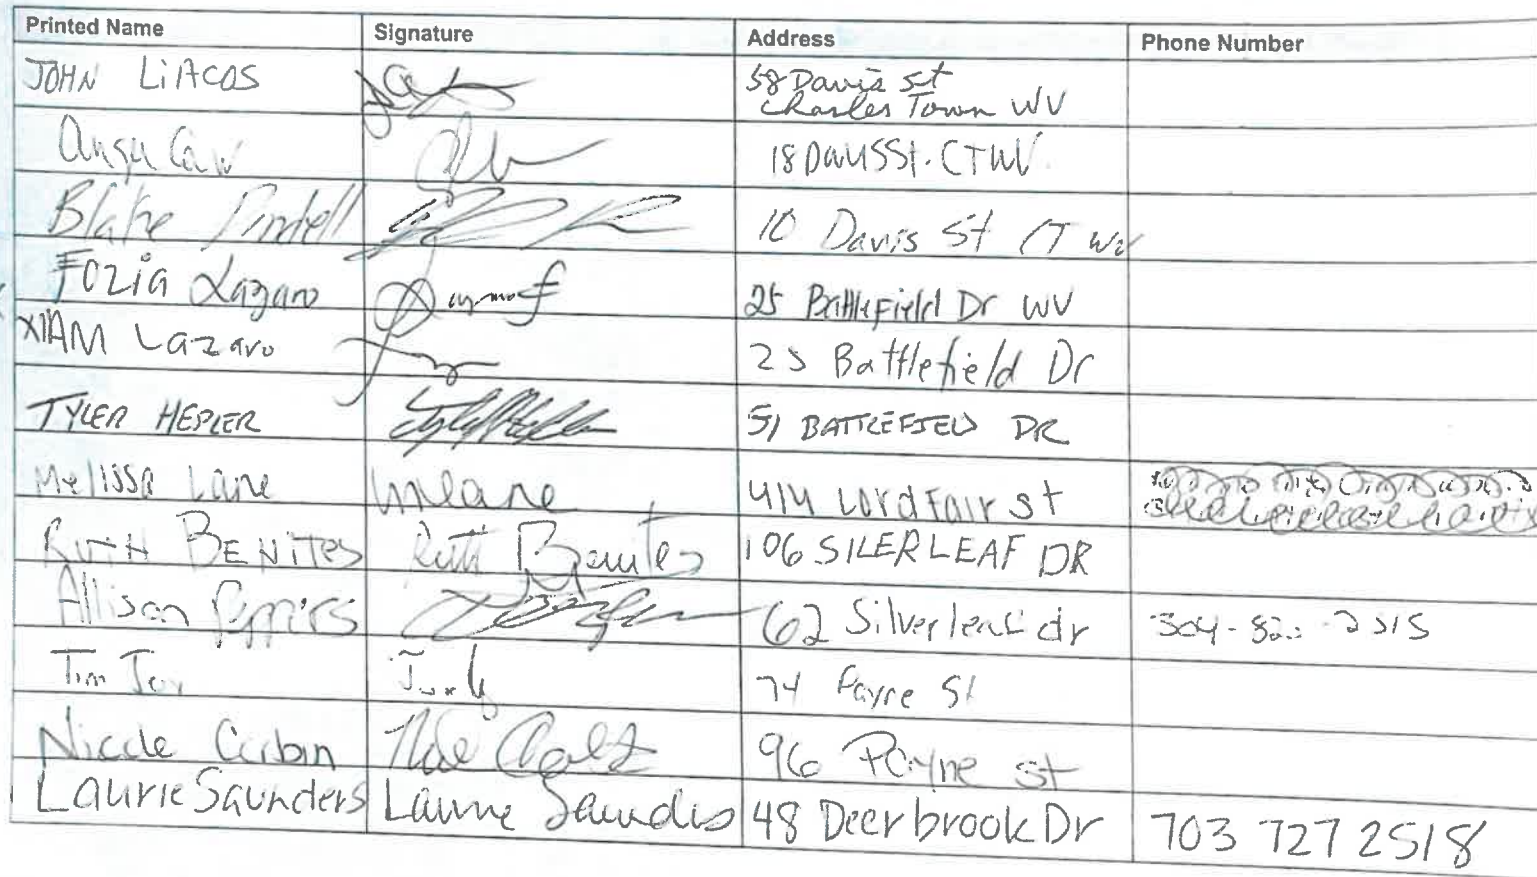 Printed Name Signature Address Phone Number
JOHN LiACOS 58 Davis st
Charles Town WV
18 Davis St. CTWV
Blake Pindell 10 Davis St CT WV
Fozia Lazaro 25 Battlefield Dr WV
XIAM Lazaro 25 Battlefield Dr
TYLER HEPLER 51 BATTLEFIELD DR
Melissa Lane mlane 414 Lord Fair st
RUTH BENITES Ruth Benites 106 SILERLEAF DR
Allison 62 Silverleaf dr 304-
Tim 74 Payne St
Nicole Corbin 96 Payne st
Laurie Saunders Laurie Saunders 48 Deerbrook Dr 703 727 2518